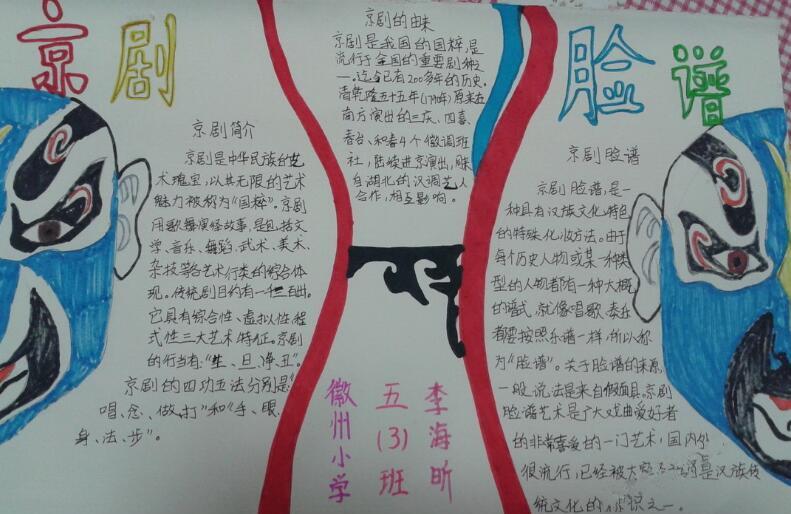 京剧
脸谱
京剧简介
京剧是中华民族的艺
术瑰宝,以其无限的艺术
魅力被称为“国粹”。京剧
用歌舞演绎故事,是包括文
学、音乐、舞蹈、武术、美术、
杂技等各艺术行类的综合体
现。传统剧目约有一千三百出。
它具有综合性、虚拟性、程
式性三大艺术特征。京剧
的行当有:“生、旦、净、丑”。
京剧的四功五法分别是“
唱、念、做、打”和“手、眼、
身、法、步”。
京剧的由来
京剧是我国的国粹,是
流行于全国的重要剧种之
一。迄今已有200多年的历史。
清乾隆五十五年(1790年)原来在
南方演出的三庆、四喜、
春台、和春4个徽调班
社,陆续进京演出,與来
自湖北的汉调艺人
合作,相互影响。
徽州小学
五(3)班
李海昕
京剧脸谱
京剧脸谱,是一
种具有汉族文化特色
的特殊化妆方法。由于
每个历史人物或某一种类
型的人物都有一种大概
的谱式,就像唱歌、奏乐
都要按照乐谱一样,所以称
为“脸谱”。关于脸谱的来源,
一般说法是来自假面具。京剧
脸谱艺术是广大戏曲爱好者
的非常喜爱的一门艺术,国内外
很流行,已经被大 是汉族传
统文化的标识之一。